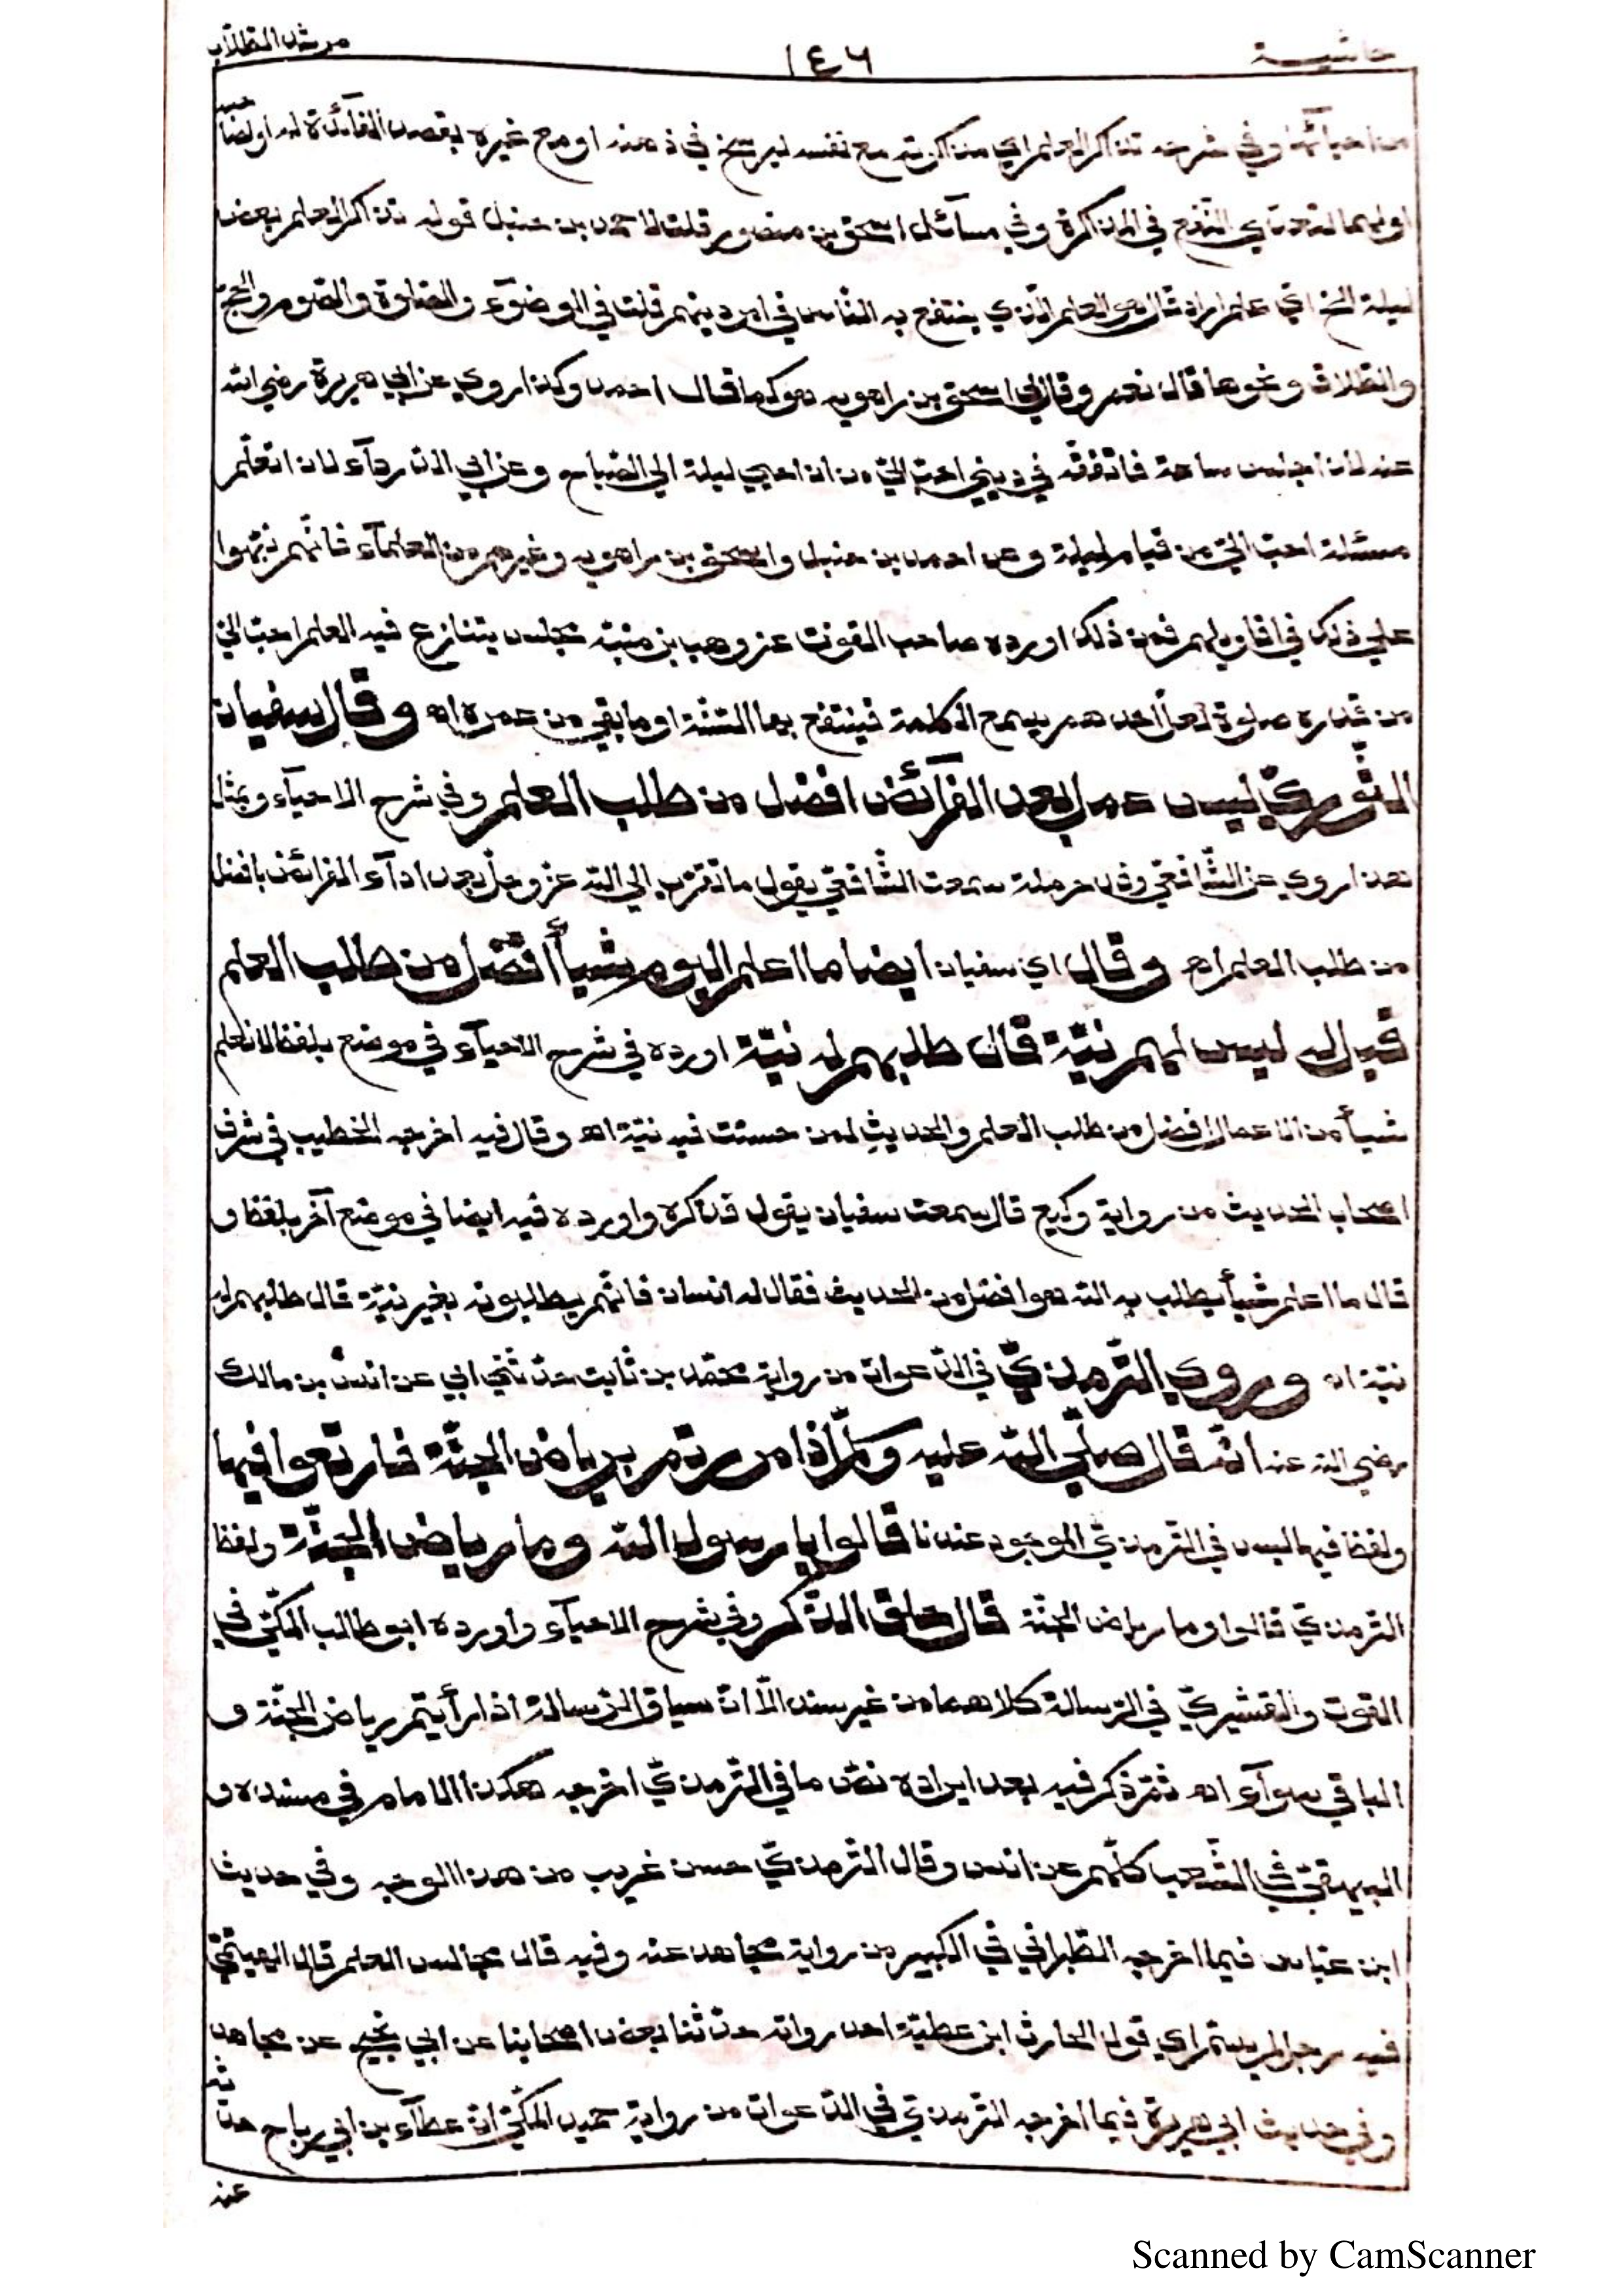 حاشية ١٤٦ مرشد الطلّاب
من احيآئها وفي شرحه تذاكر العلم اي مذاكرته مع نفسه ليرسخ في ذهنه او مع غيره بقصد الفآئدة له او لصاحبه
او لهما لتعدّي النّفع في المذاكرة وفي مسآئل اسحق بن منصور قلت لاحمد بن حنبل قوله تذاكر العلم بعض
ليلة الخ ايّ علم اراد قال هو العلم الّذي ينتفع به النّاس في امر دينهم قلت في الوضوء والصّلوة والصّوم والحجّ
والطّلاق ونحوها قال نعم وقال لي اسحق بن راهويه هو كما قال احمد وكذا روي عن ابي هريرة رضي الله
عنه لان اجلس ساعة فاتفقّه في ديني احبّ اليّ من ان احيي ليلة الي الصّباح وعن ابي الدّردآء لان اتعلّم
مسئلة احبّ اليّ من قيام ليلة وعن احمد بن حنبل واسحق بن راهويه وغيرهم من العلمآء فانّهم نبّهوا
علي ذلك في اقاويلهم فمن ذلك اورده صاحب القوت عن وهب بن منبّه مجلس يتنازع فيه العلم احبّ اليّ
من قدره صلوة لعلّ احدهم يسمع الكلمة فينتفع بها السّنة او ما بقي من عمره اه وقال سفيان
الثّوريّ ليس عمل بعد الفرآئض افضل من طلب العلم وفي شرح الاحيآء وبمثل
هذا روي عن الشّافعيّ وقال حرملة سمعت الشّافعيّ يقول ما تقرّب الي الله عزّ وجلّ بعد ادآء الفرائض بافضل
من طلب العلم اه وقال اي سفيان ايضا ما اعلم اليوم شيأ أفضل من طلب العلم
قيل له ليس لهم نيّة قال طلبهم له نيّة اورده في شرح الاحيآء في موضع بلفظ لا نعلم
شيأ من الاعمال افضل من طلب العلم والحديث لمن حسنت فيه نيّته اه وقال فيه اخرجه الخطيب في شرف
اصحاب الحديث من رواية وكيع قال سمعت سفيان يقول فذكره واورده فيه ايضا في موضع آخر بلفظ و
قال ما اعلم شيأ يطلب به الله هو افضل من الحديث فقال له انسان فانّهم يطلبونه بغير نيّة قال طلبهم له
نيّة اه وروي التّرمذيّ في الدّعوات من رواية محمّد بن ثابت حدّثني ابي عن انس بن مالك
رضي الله عنه انّه قال صلّي الله عليه وسلّم اذا مررتم برياض الجنّة فارتعوا فيها
ولفظ فيها ليس في التّرمذيّ الموجود عندنا قالوا يا رسول الله وما رياض الجنّة ولفظ
التّرمذيّ قالوا وما رياض الجنّة قال حلق الذّكر وفي شرح الاحيآء واورده ابو طالب المكّيّ في
القوت والقشيريّ في الرّسالة كلاهما من غير سند الّا انّ سياق الرّسالة اذا رأيتم رياض الجنّة و
الباقي سوآء اه ثمّ ذكر فيه بعد ايراده نصّ ما في التّرمذيّ اخرجه هكذا الامام في مسنده و
البيهقيّ في الشّعب كلّهم عن انس وقال التّرمذيّ حسن غريب من هذا الوجه وفي حديث
ابن عبّاس فيما اخرجه الطّبراني في الكبير من رواية مجاهد عنه وفيه قال مجالس العلم قال الهيثميّ
فيه رجل لم يسمّ اي قول الحارث ابن عطيّة احد رواته حدّثنا بعض اصحابنا عن ابي نجيح عن مجاهد
وفي حديث ابي هريرة فيما اخرجه التّرمذيّ في الدّعوات من رواية حميد المكّيّ انّ عطآء بن ابي رباح حدّثه
عنه
Scanned by CamScanner